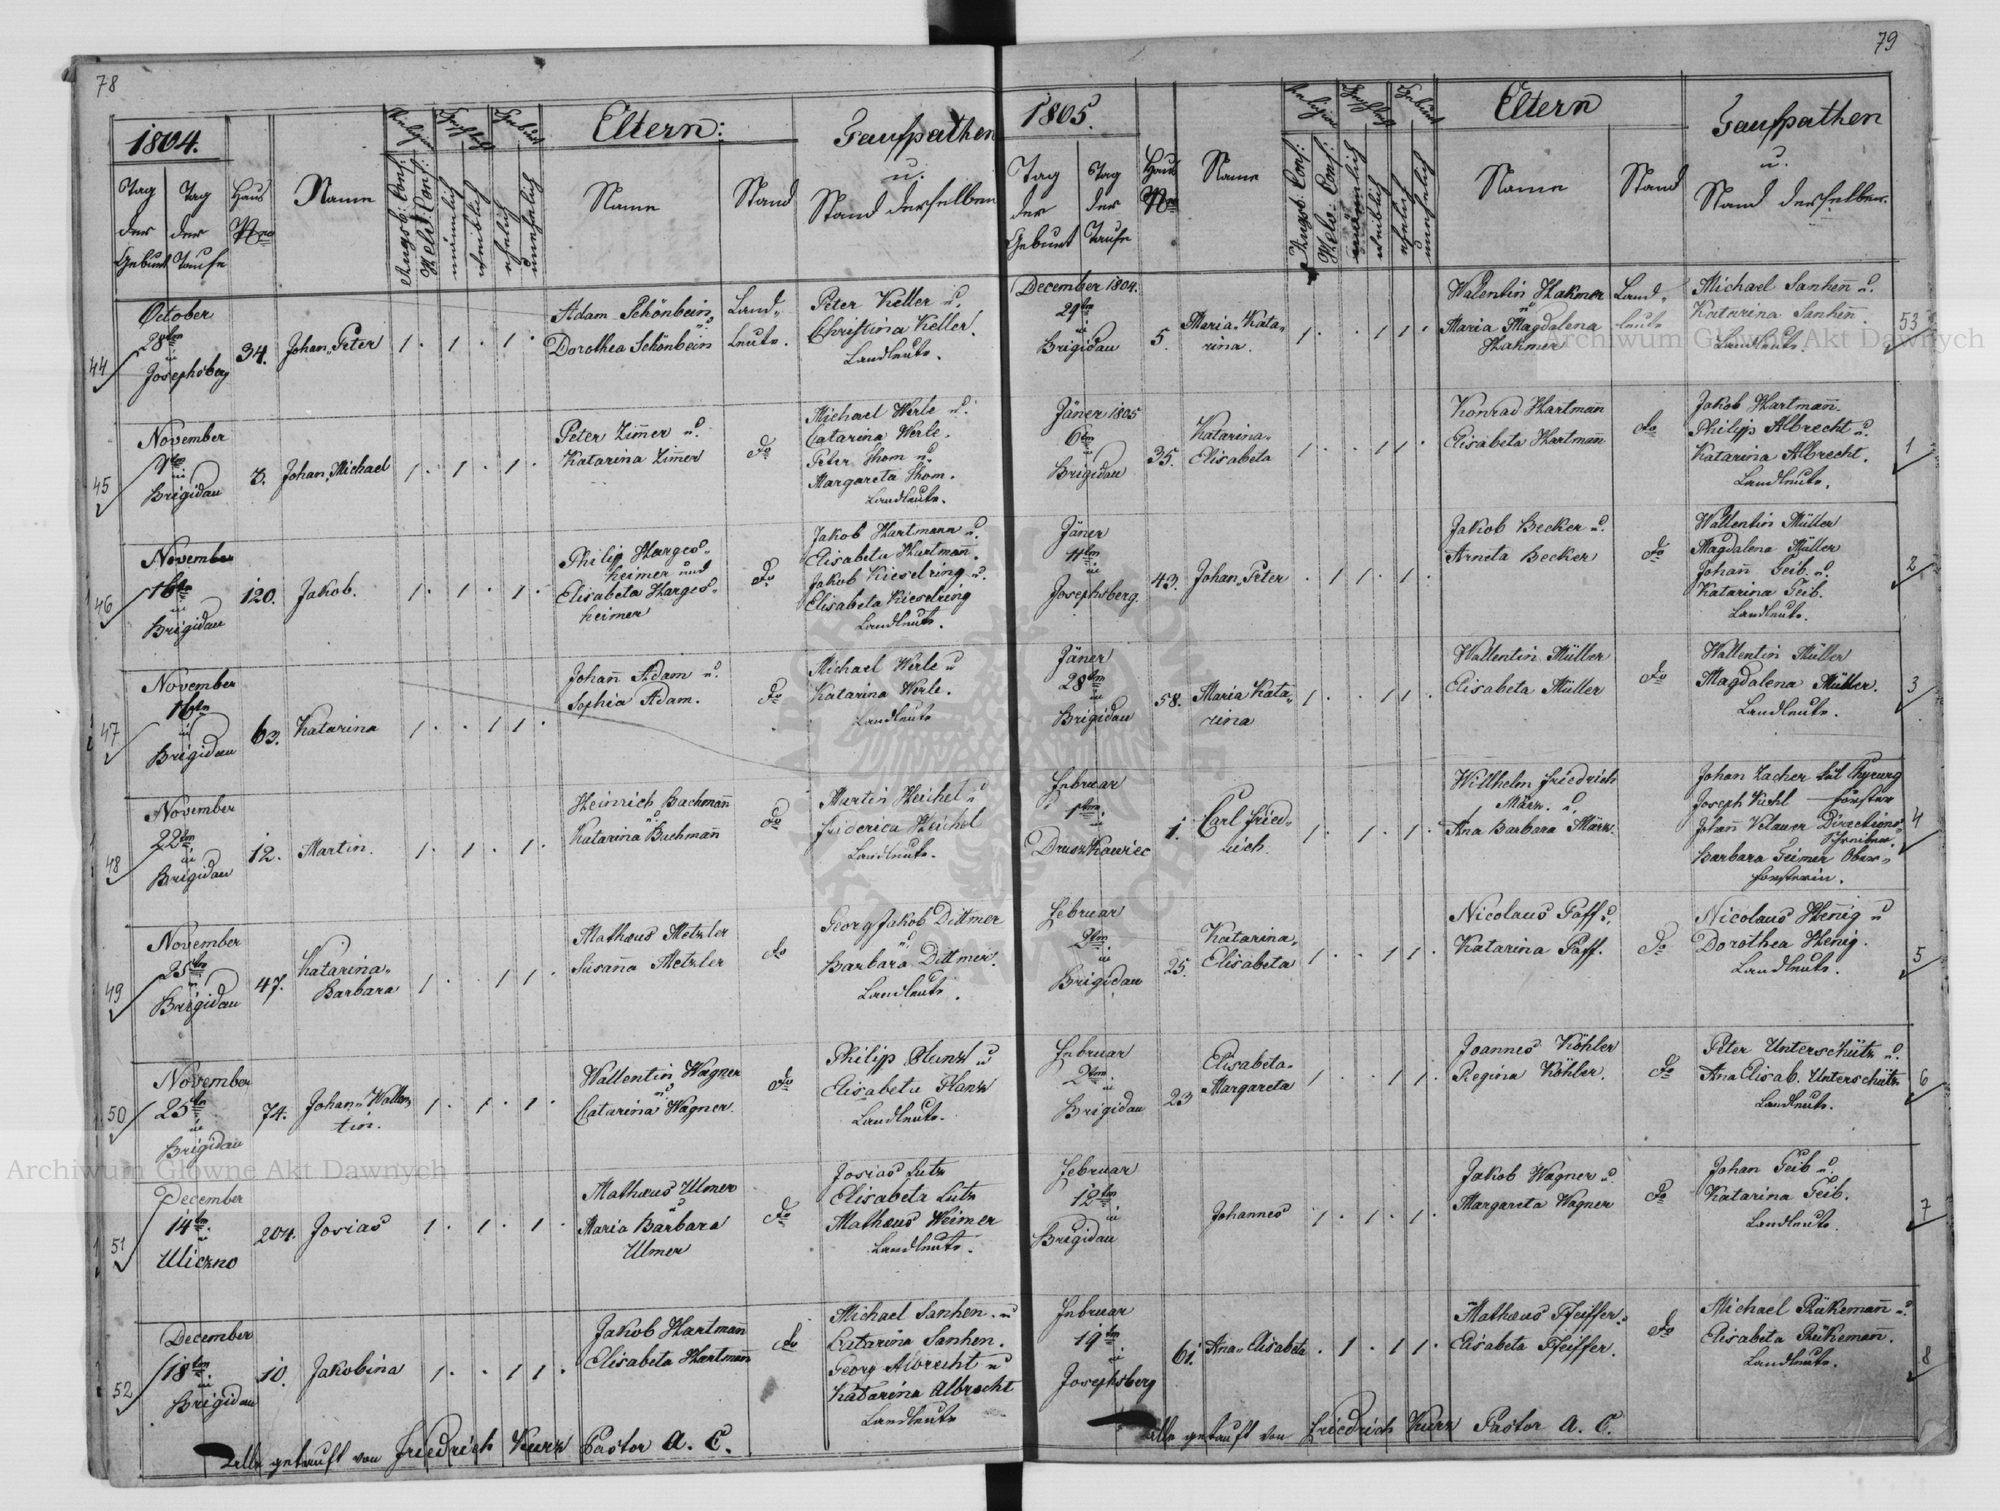 78
1804.
Tag der Geburt
Tag der Taufe
Haus Nro
Name
Religion
Augsb: Conf:
Helv: Conf:
Geschlecht
männlich
weiblich
Geburt
ehelich
unehelich
Eltern:
Name
Stand
Taufpathen
u.
Stand derselben
44
October
28ten
in
Josephsberg
34.
Johan, Peter
1 . 1 . 1 .
Adam Schönbein
u.
Dorothea Schönbein
Land-
leute.
Peter Keller u.
Christina Keller.
Landleute.
45
November
in
Brigidau
Johan, Michael
1 . 1 . 1 .
Peter Zimer u.
Katarina Zimer
do
Michael Werle u.
Catarina Werle.
Peter Thom u.
Margareta Thom.
Landleute.
46
November
16ten
in
Brigidau
120.
Jakob.
1 . 1 . 1 .
Philip Harges-
heimer und
Elisabeta Harges-
heimer
do
Jakob Hartmann u.
Elisabeta Hartman.
Jakob Kieselring u.
Elisabeta Kieselring
Landleute.
47
November
16ten
in
Brigidau
63.
Katarina
1 . . 1 1 .
Johan Adam u.
Sophia Adam.
do
Michael Werle u
Katarina Werle.
Landleute
48
November
22ten
in
Brigidau
12.
Martin.
1 . 1 . 1 .
Heinrich Bachmann
u
Katarina Buchmann
do
Martin Heichel u
Friderica Heichel
Landleute.
49
November
25ten
in
Brigidau
47.
Katarina-
Barbara
1 . . 1 1 .
Mathæus Metzler
Susana Metzler
do
Georg Jakob Dittmer
u
Barbara Dittmer.
Landleute.
50
November
25ten
in
Brigidau
74.
Johan-Wallen
tin.
1 . 1 . 1 .
Wallentin Wagner
u
Catarina Wagner.
do
Philipp Planz u
Elisabeta Planz
Landleute.
51
December
14ten
in
Uliczno
204.
Josias
1 . 1 . 1 .
Mathæus Ulmer
u
Maria Barbara
Ulmer
do
Josias Lutz
Elisabeta Lutz
Mathæus Weimer
Landleute.
52
December
18ten
in
Brigidau
10.
Jakobina
1 . . 1 1 .
Jakob Hartmann
Elisabeta Hartmann
do
Michael Sanhen. u
Catarina Sanhen.
Georg Albrecht u
Katarina Albrecht
Landleute
Alle getauft von Friedrich Kurz Pastor A. C.
79
1805.
Tag der Geburt
Tag der Taufe
Haus Nro
Name
Religion
Augsb. Conf:
Helv: Conf:
Geschlecht
männlich
weiblich
Geburt
ehelich
unehelich
Eltern
Name
Stand
Taufpathen
u.
Stand derselben.
December 1804.
29ten
in
Brigidau
5.
Maria-Kata-
rina.
1 . . 1 1 .
Walentin Hakmer
u
Maria Magdalena
Hakmer
Land-
leute
Michael Sanhen u.
Katarina Sanhen.
Landleute.
53
Jäner 1805
6ten
in
Brigidau
35.
Katarina-
Elisabeta
1 . . 1 1 .
Konrad Hartmann
Elisabeta Hartmann
do
Jakob Hartmann.
Philipp Albrecht u.
Katarina Albrecht.
Landleute.
1
Jäner
11ten
in
Josephsberg.
43.
Johan, Peter
. 1 1 . 1 .
Jakob Becker u.
Arneta Becker
do
Wallentin Müller
Magdalena Müller
Johann Geib. u.
Katarina Geib.
Landleute.
2
Jäner
28ten
in
Brigidau
58.
Maria Kata-
rina
1 . . 1 1 .
Wallentin Müller
Elisabeta Müller
do
Wallentin Müller
Magdalena Müller.
Landleute.
3
Februar
1ten
in
Druszkawiec
1.
Carl Fried-
rich.
1 . 1 . 1 .
Willhelm Friedrich
März. u.
Ana Barbara März.
Johan Zacher kal Chyrurg
Joseph Kuhl — Förster
Johann Velauer Directions-
Schreiber.
Barbara Geimer Ober-
forsterin.
4
Februar
2ten
in
Brigidau
25.
Katarina-
Elisabeta
1 . . 1 1 .
Nicolaus Faff u.
Katarina Faff.
do
Nicolaus Henig u
Dorothea Henig.
Landleute.
5
Februar
2ten
in
Brigidau
23
Elisabeta-
Margareta
1 . . 1 1 .
Joannes Köhler
Regina Köhler.
do
Peter Unterschütz u.
Ana Elisab. Unterschütz
Landleute.
6
Februar
12ten
in
Brigidau
Johannes
1 . 1 . 1 .
Jakob Wagner u.
Margareta Wagner
do
Johan Geib u.
Katarina Geib.
Landleute.
7
Februar
19ten
in
Josephsberg
61.
Ana-Elisabeta
. 1 . 1 1 .
Mathæus Pfeiffer.
Elisabeta Pfeiffer.
do
Michael Rükemann u.
Elisabeta Rükemann.
Landleute.
8
Alle getauft von Friedrich Kurz Pastor A. C.
Archiwum Główne Akt Dawnych
Archiwum Główne Akt Dawnych